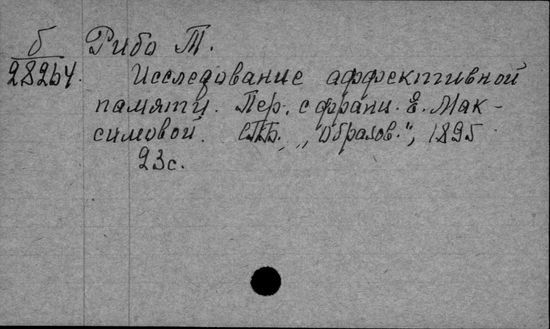 б Рибо Т.
28264. Исследование аффективной
памяти. Пер. с франц. Е. Мак-
симовой. СПб., "Образов.", 1895
23с.